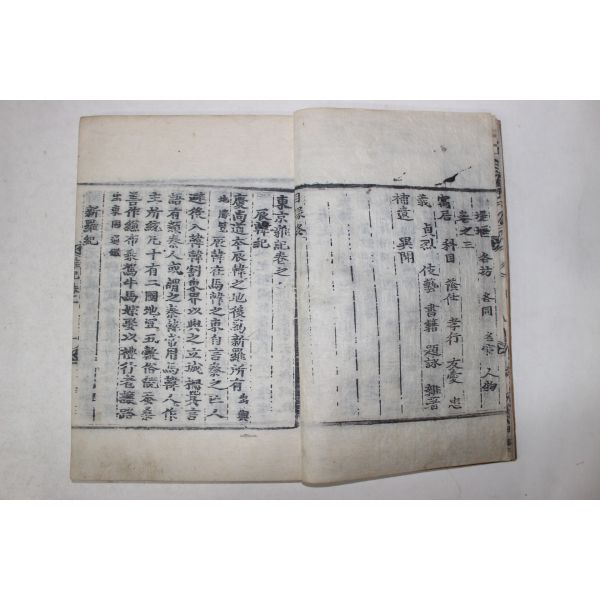 塚墓 各坊 各同 人物
卷之三
寓居 科目 蔭仕 孝行 友愛 忠
義 貞烈 伎藝 書籍 題詠 雜著
補遺 異聞
目錄終
東京雜記卷之一
辰韓記
慶尚道本辰韓之地後爲新羅所有出輿
地勝覽辰韓在馬韓之東自言秦之亡人
避役入韓韓割東界以與之立城柵其言
語有類秦人或謂之秦韓常用馬韓人作
主 十有二國地宜五穀俗饒蚕桑
善作縑布乘駕牛馬嫁娶以禮行者讓路
出東國通鑑
新羅紀